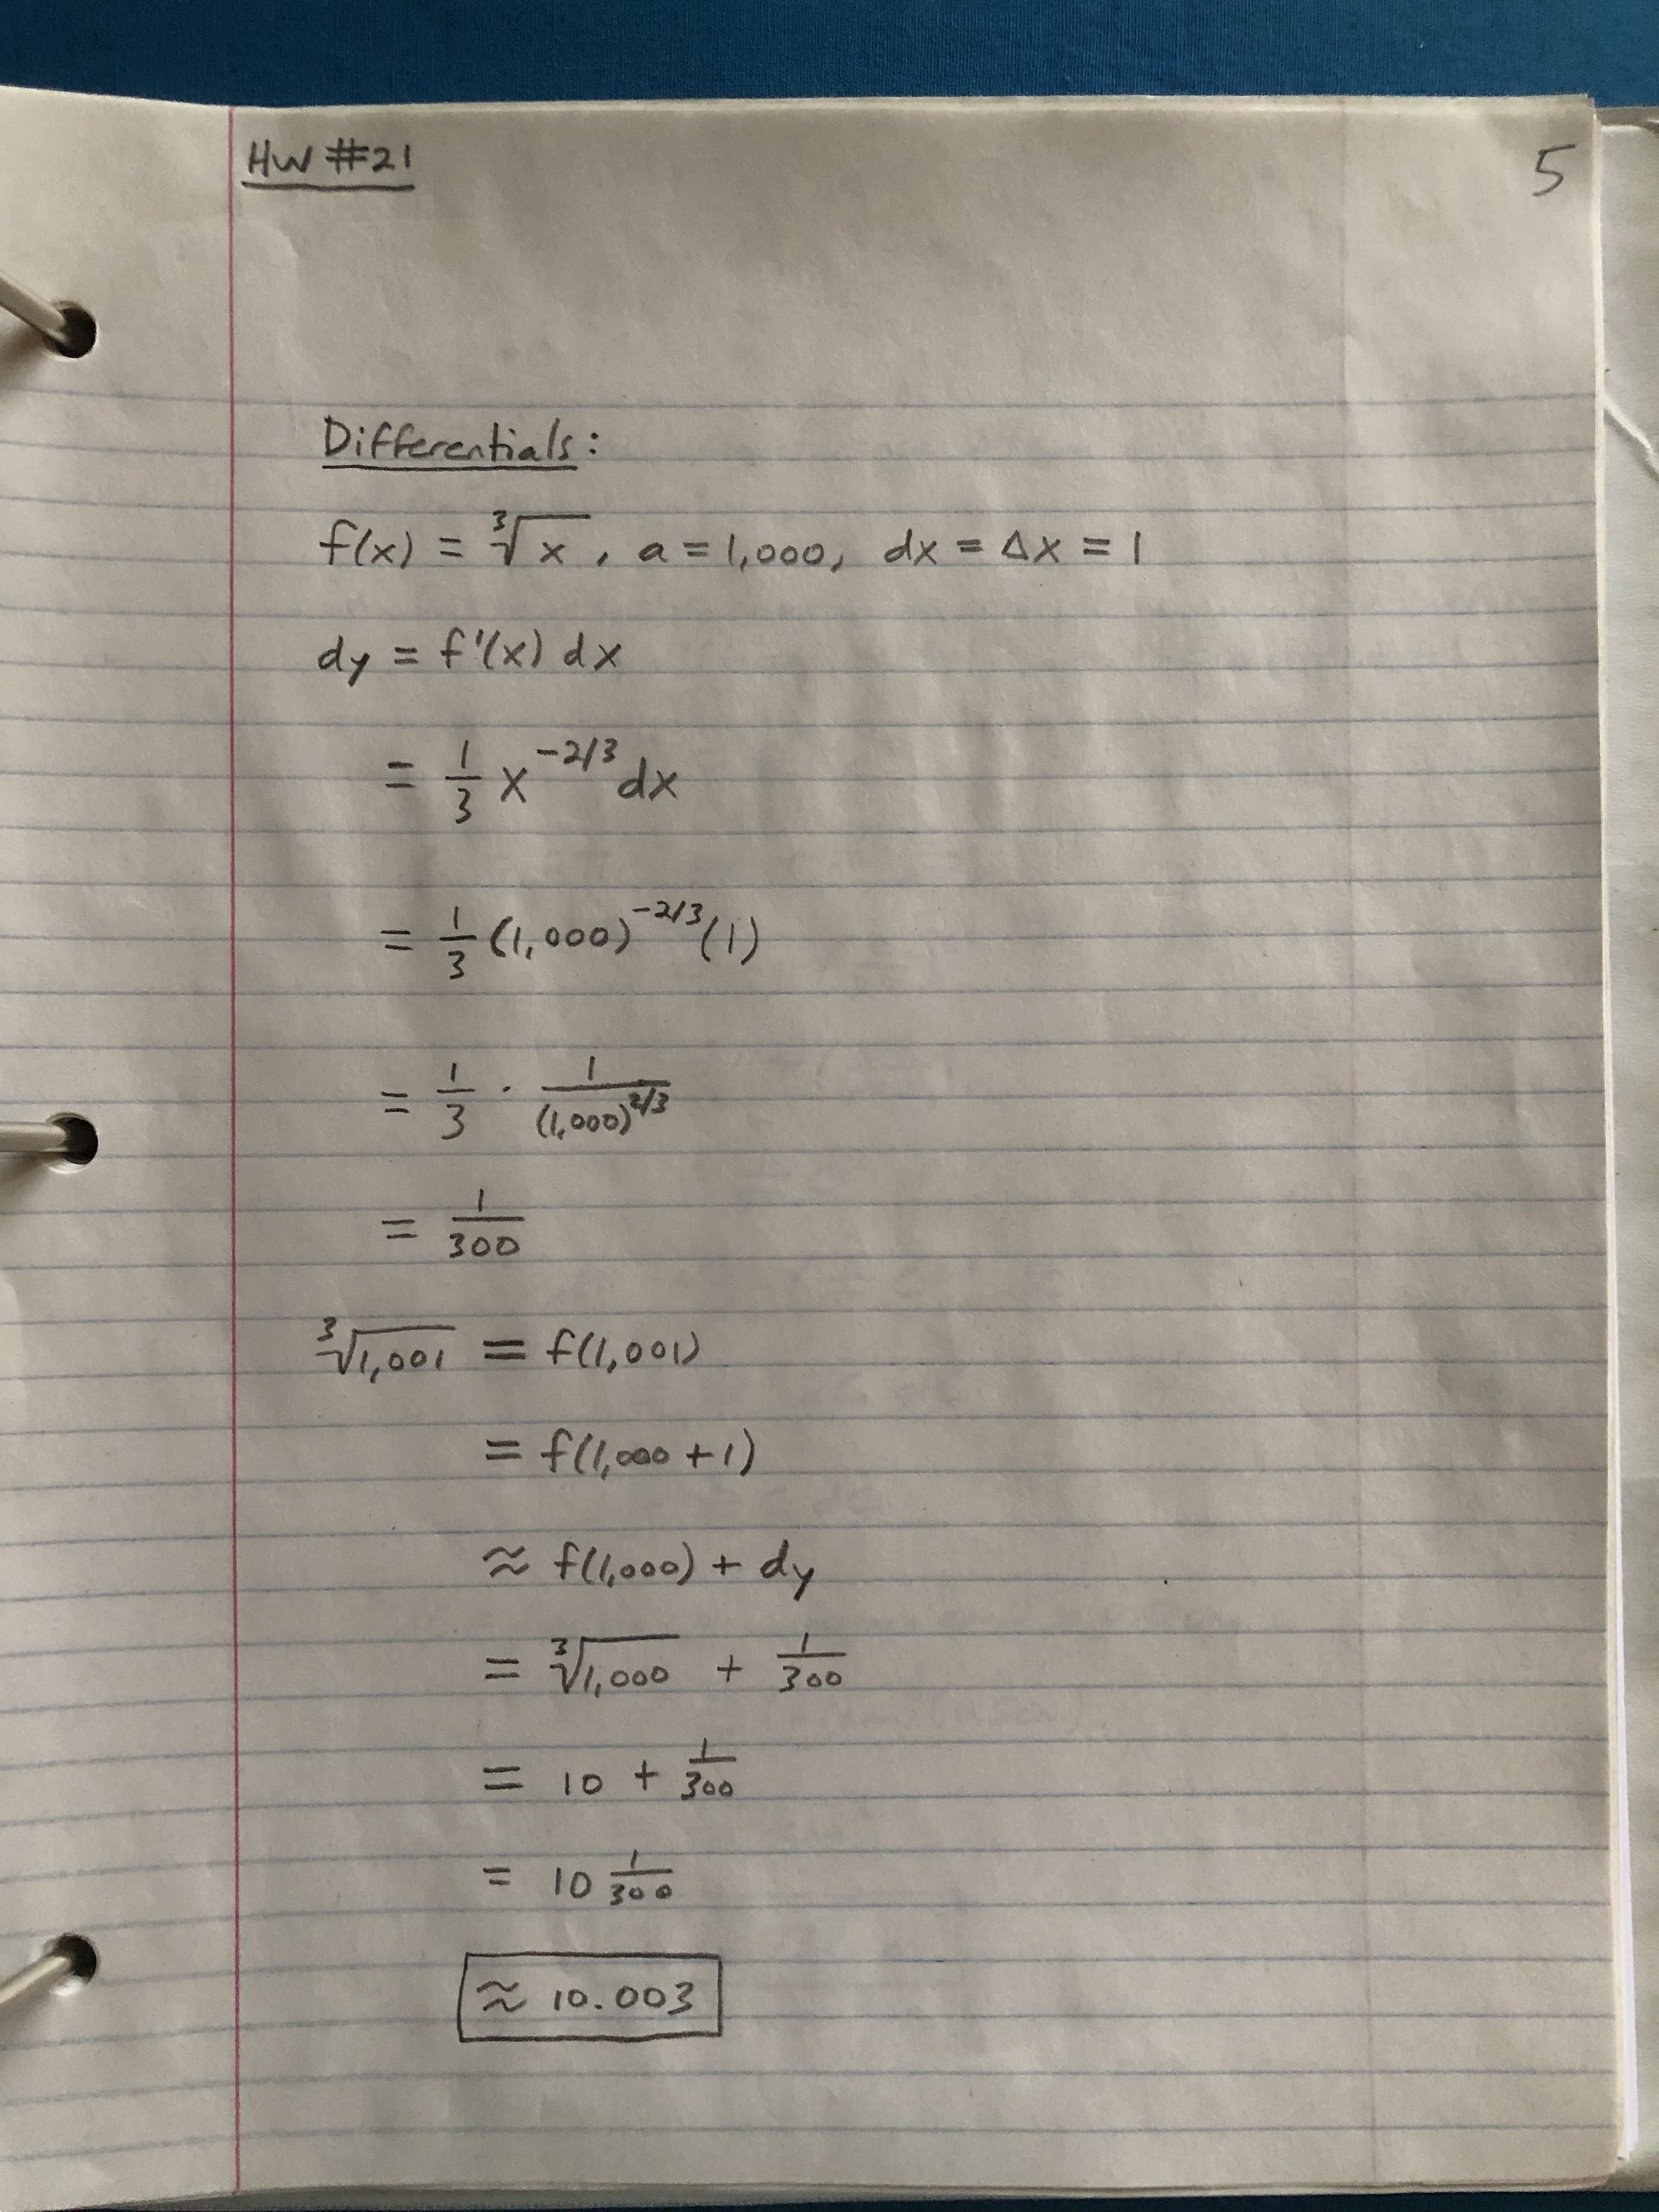 HW #21
5
Differentials:
f(x) = ∛x, a = 1,000, dx = Δx = 1
dy = f'(x) dx
= 1/3 x^(-2/3) dx
= 1/3 (1,000)^(-2/3) (1)
= 1/3 · 1/(1,000)^(2/3)
= 1/300
∛1,001 = f(1,001)
= f(1,000 + 1)
≈ f(1,000) + dy
= ∛1,000 + 1/300
= 10 + 1/300
= 10 1/300
≈ 10.003